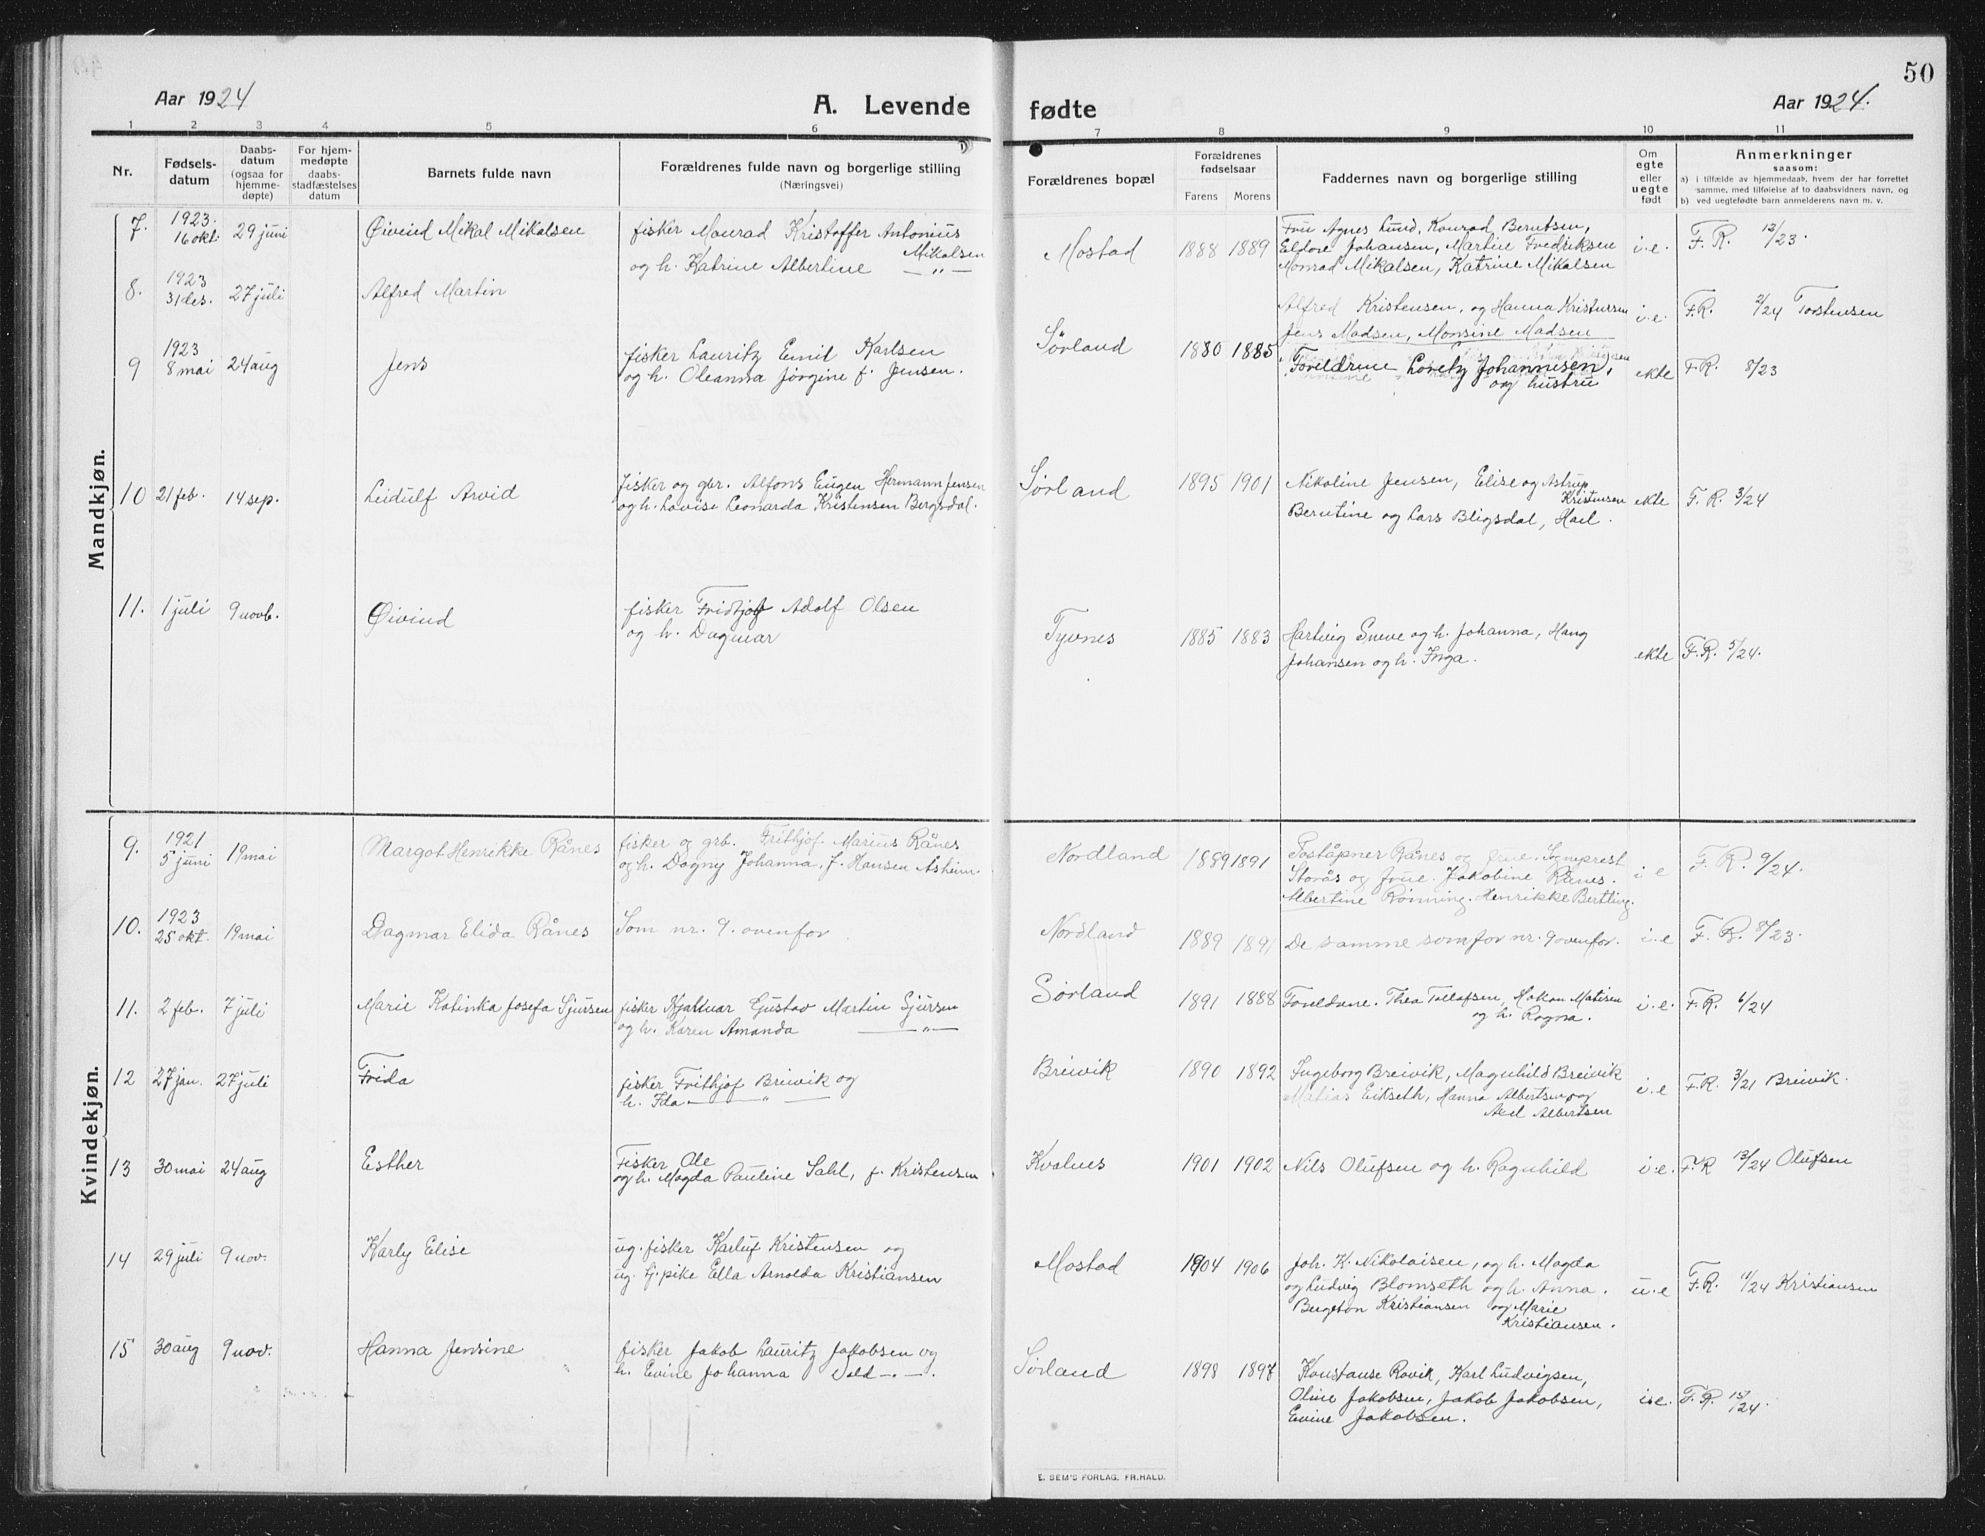 50
Aar 1924
A. Levende fødte
Aar 1924.
1 2 3 4 5 6 7 8 9 10 11
Nr.
Fødsels-
datum
Daabs-
datum
(ogsaa for
hjemme-
døpte)
For hjem-
medøpte
daabs-
stadfæstelses
datum
Barnets fulde navn
Forældrenes fulde navn og borgerlige stilling
(Næringsvei)
Forældrenes bopæl
Forældrenes
fødselsaar
Farens Morens
Faddernes navn og borgerlige stilling
Om
egte
eller
uegte
født
Anmerkninger
saasom:
a) i tilfælde av hjemmedaab, hvem der har forrettet
samme, med tilføielse af to daabsvidners navn, og
b) ved uegtefødte barn anmelderens navn m. v.
Mandkjøn.
7. 1923. 16 okt. 29 juni Øivind Mikal Mikalsen
fisker Monrad Kristoffer Antonius
Mikalsen
og h. Katrine Albertine — „ —
Mostad 1888 1889
Fru Agnes Lund, Konrad Berntsen,
Eldore Johansen, Martin Fredriksen
Monrad Mikalsen, Katrine Mikalsen
i.e. F. R. 12/23.
8. 1923 31 des. 27 juli Alfred Martin
Alfred Kristensen, og Hanna Kristensen
Jens Madsen, Monsine Madsen
i.e. F.R. 2/24 Torstensen
9 1923 8 mai 24 aug Jens
fisker Lauritz Emil Karlsen
og h. Oleanna Jørgine f. Jensen.
Sørland 1880 1885
Foreldrene Johannesen,
og hustru
ekte F.R. 8/23
10 21 feb. 14 sep. Leidulf Arvid
fisker og gbr. Alfons Eugen Hermann Jensen
og h. Lovise Leonarda Kristensen Bergsdal.
Sørland 1895 1901
Nikoline Jensen, Elise og Astrup
Kristensen
Berntine og Lars Bligsdal,
ekte F. R. 3/24
11. 1 juli 9 novb. Øivind
fisker Fridtjof Adolf Olsen
og h. Dagmar
Tyvnes 1885 1883
Hartvig Sneve og h. Johanna, Hang
Johansen og h. Inga.
ekte F.R. 5/24.
Kvindekjøn.
9. 1921 5 juni 19 mai Margot Henrikke Rånes
fisker og grb. Frithjof Marius Rånes
og h. Dagny Johanna, f. Hansen Åsheim.
Nordland 1889 1891
Poståpner Rånes og frue. Sogneprest
Storås og frue. Jakobine Rånes.
Albertine Rønning. Henrikke Bertting.
i e F. R. 9/24.
10. 1923 25 okt. 19 mai Dagmar Elida Rånes
Som nr. 9. ovenfor
Nordland 1889 1891 De samme som for nr. 9 ovenfor. i.e F. R. 8/23.
11. 2 feb. 7 juli Marie Katinka Josefa Sjursen
fisker Hjalmar Gustav Martin Sjursen
og h. Karen Amanda — „ —
Sørland 1891 1888
Foreldrene. Thea Tollofsen, Hakon Matisen
og h. Ragna.
i.e. F.R. 6/24
12 27 jan. 27 juli Frida
fisker Frithjof Breivik og
h. Ida — „ —
Breivik 1890 1892
Ingeborg Breivik, Magnhild Breivik
Matias Eikseth, Hanna Albertsen og
Axel Albertsen
i.e F.R. 3/21 Breivik.
13 30 mai 24 aug Esther
Fisker Ole
og h. Magda Pauline Dahl, f. Kristensen
Kvalnes 1901 1902 Nils Olufsen og h. Ragnhild i.e. F.R 13/24 Olufsen
14 29 juli 9 nov. Karly Elise
ug. fisker Karluf Kristensen og
ug. tj. pike Ella Arnolda Kristiansen
Mostad 1904 1906
Joh. K. Nikolaisen, og h. Magda
og Ludvig Blomseth og h. Anna.
Bergeton Kristiansen og Marie
Kristiansen.
u.e F.R. 11/24 Kristiansen
15 30 aug 9 nov. Hanna Jensine
fisker Jakob Lauritz Jakobsen og
h. Evine Johanna Dold —„—.
Sørland 1898 1897
Konstanse Rovik, Karl Ludvigsen,
Oline Jakobsen, Jakob Jakobsen,
Evine Jakobsen.
i.e. F.R. 15/24.
E. SEM'S FORLAG, FR.HALD.